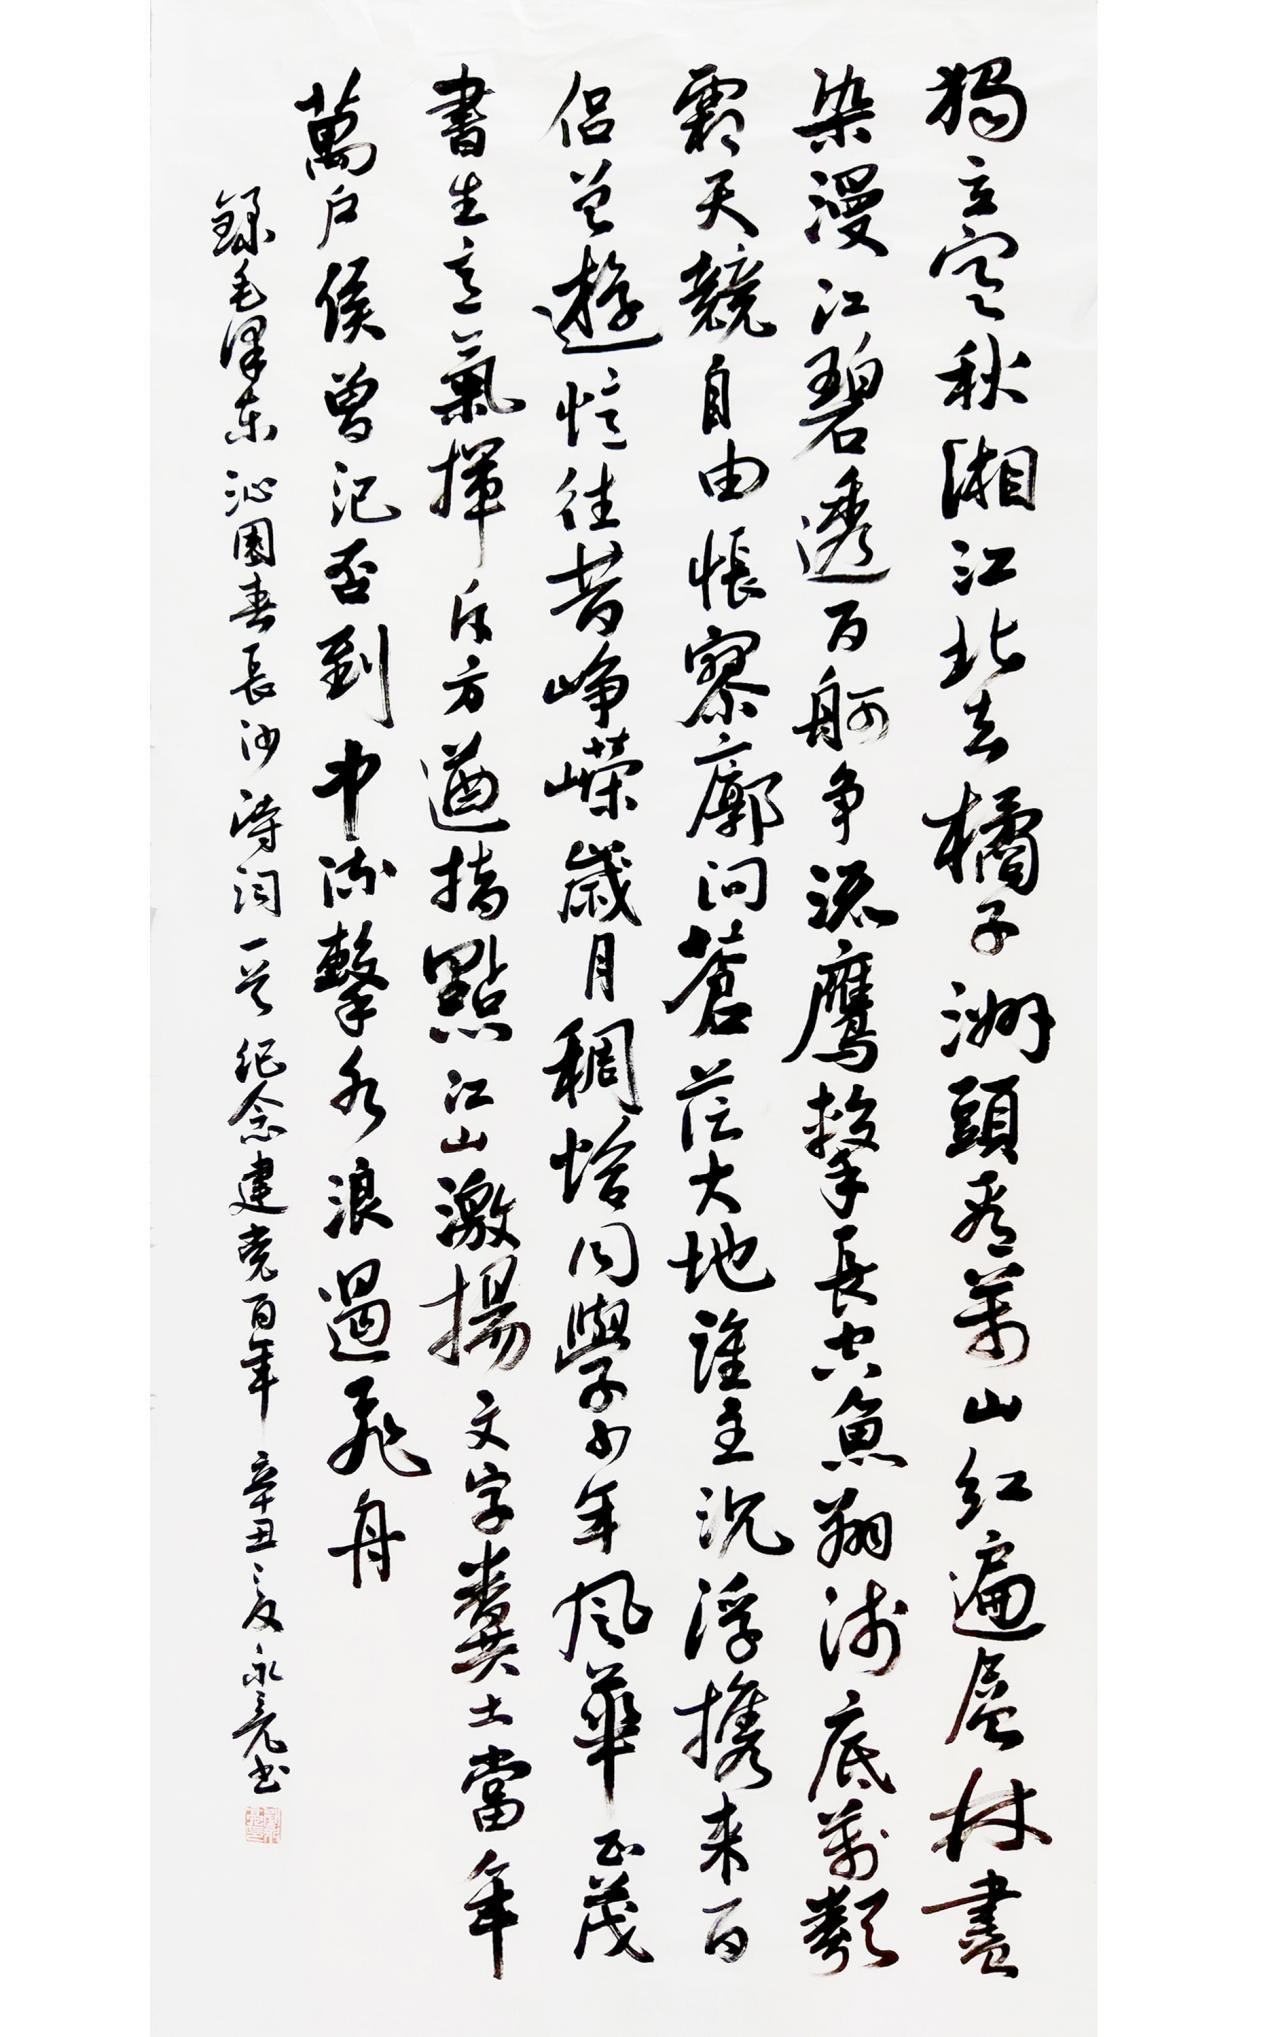 獨立寒秋湘江北去橘子洲頭看萬山紅遍層林盡
染漫江碧透百舸争流鷹擊長空魚翔淺底萬類
霜天競自由悵寥廓問蒼茫大地誰主沉浮携来百
侣曾遊憶往昔崢嶸歲月稠恰同學少年風華正茂
書生意氣揮斥方遒指點江山激揚文字糞土當年
萬户侯曾記否到中流擊水浪遏飛舟
録毛澤東沁園春長沙詩詞一首紀念建党百年 辛丑之夏永亮书